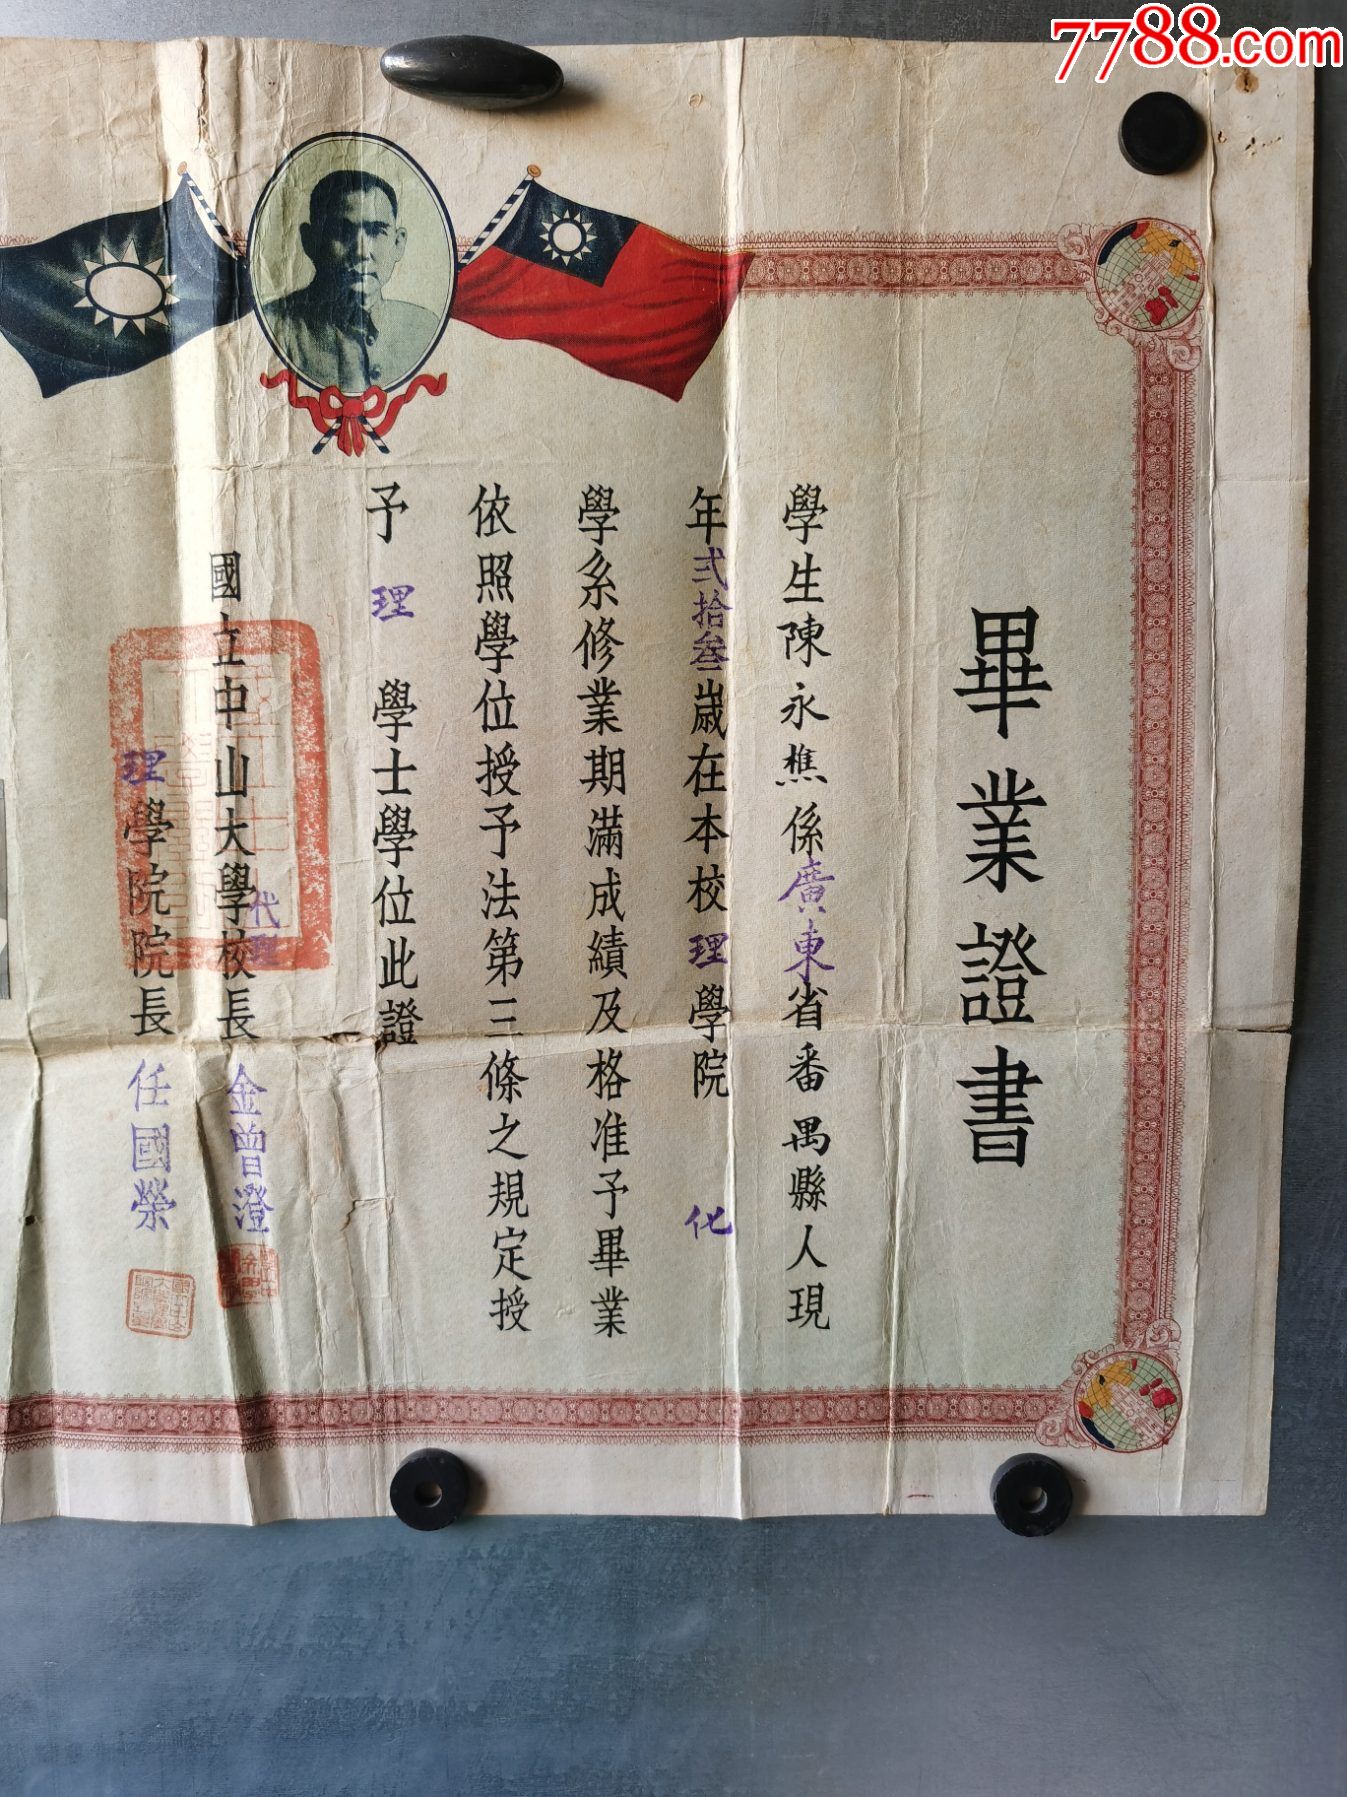 7788.com
畢業證書
學生陳永樵係廣東省番禺縣人現
年弍拾叁歲在本校理學院化
學系修業期滿成績及格准予畢業
依照學位授予法第三條之規定授
予理學士學位此證
國立中山大學代理校長金曾澄
理學院院長任國榮